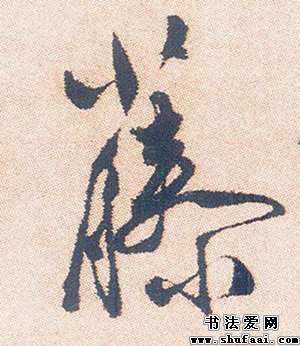 藤
书法爱网
www.shufaai.com